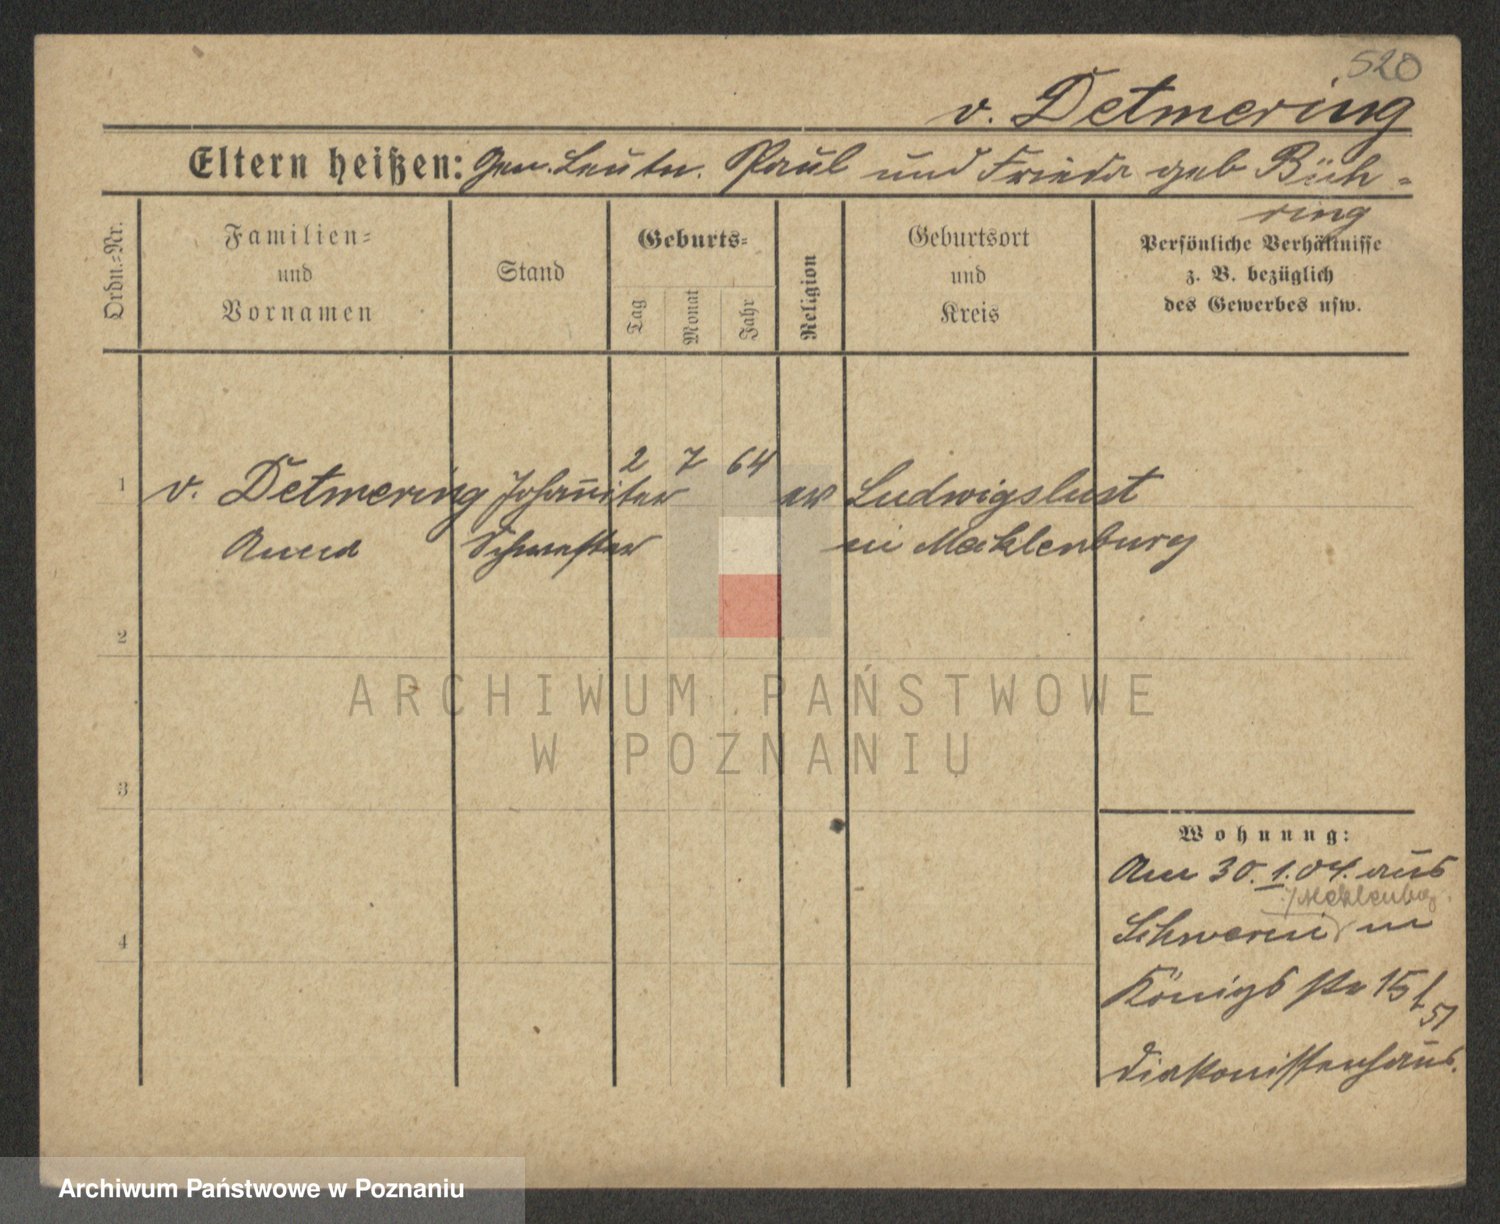 520
v. Detmering
Eltern heißen: Gen. Leutn. Paul und Frieda geb Büh-
ring
Ordn.-Nr.
Familien-
und
Vornamen
Stand
Geburts-
Tag
Monat
Jahr
Religion
Geburtsort
und
Kreis
Persönliche Verhältnisse
z. B. bezüglich
des Gewerbes usw.
1 v. Detmering Johanniter 2 7 64 ev Ludwigslust
Schwester in Mecklenburg
2
3
4
Wohnung:
Am 30.1.04. aus
/Mecklenbg.
Schwerin in
Königs str 15
Diakonissenhaus.
ARCHIWUM PAŃSTWOWE
W POZNANIU
Archiwum Państwowe w Poznaniu